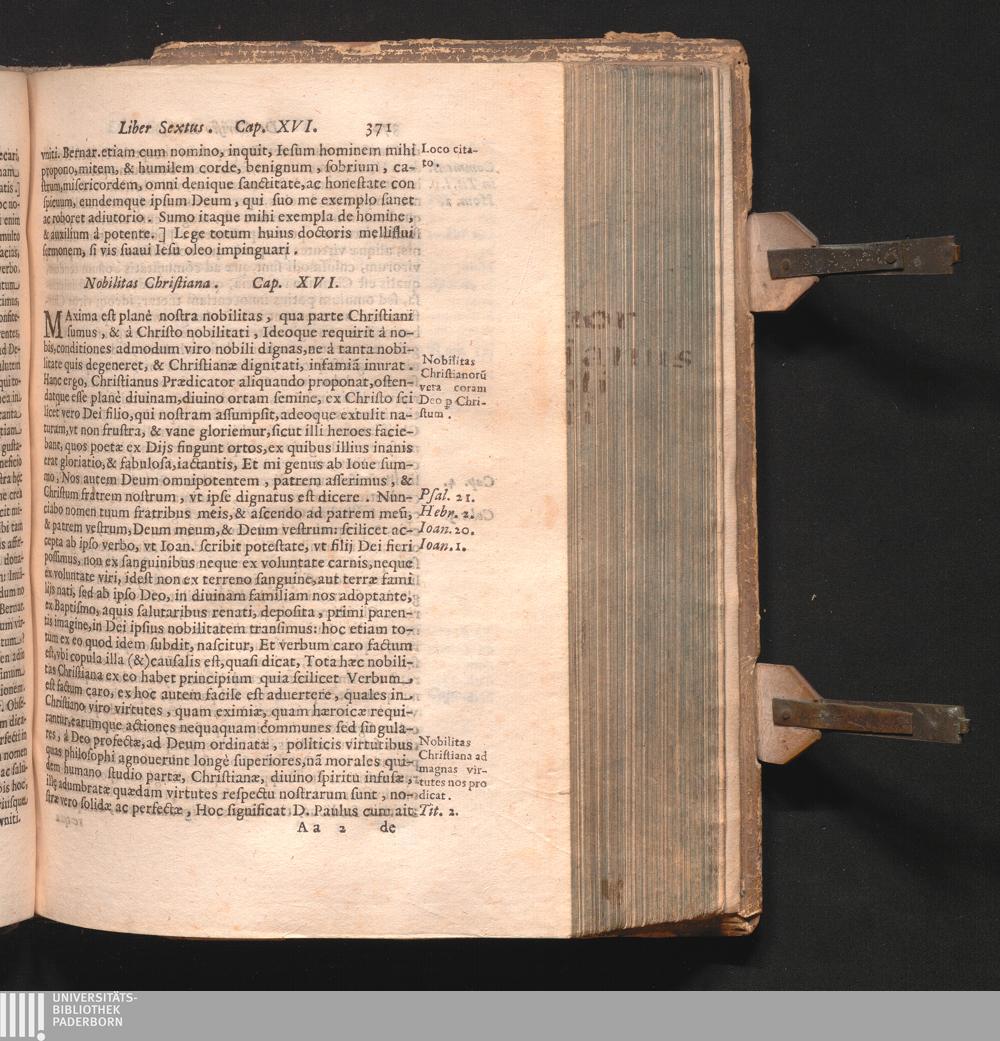 Liber Sextus. Cap. XVI. 371
vniti. Bernar. etiam cum nomino, inquit, Iesum hominem mihi
propono, mitem, & humilem corde, benignum, sobrium, ca-
strum, misericordem, omni denique sanctitate, ac honestate con
spicuum, eundemque ipsum Deum, qui suo me exemplo sanet
ac roboret adiutorio. Sumo itaque mihi exempla de homine,
& auxilium à potente.] Lege totum huius doctoris melliflui
sermonem, si vis suaui Iesu oleo impinguari.
Loco cita-
to.
Nobilitas Christiana. Cap. XVI.
MAxima est planè nostra nobilitas, qua parte Christiani
sumus, & à Christo nobilitati, Ideoque requirit à no-
bis, conditiones admodum viro nobili dignas, ne à tanta nobi-
litate quis degeneret, & Christianæ dignitati, infamiã inurat.
Hanc ergo, Christianus Prædicator aliquando proponat, osten-
datque esse planè diuinam, diuino ortam semine, ex Christo sci
licet vero Dei filio, qui nostram assumpsit, adeoque extulit na-
turam, vt non frustra, & vane gloriemur, sicut illi heroes facie-
bant, quos poetæ ex Dijs fingunt ortos, ex quibus illius inanis
erat gloriatio, & fabulosa, iactantis, Et mi genus ab Ioue sum-
mo, Nos autem Deum omnipotentem, patrem asserimus, &
Christum fratrem nostrum, vt ipse dignatus est dicere. Nun-
ciabo nomen tuum fratribus meis, & ascendo ad patrem meũ,
& patrem vestrum, Deum meum, & Deum vestrum: scilicet ac-
cepta ab ipso verbo, vt Ioan. scribit potestate, vt filij Dei fieri
possimus, non ex sanguinibus neque ex voluntate carnis, neque
ex voluntate viri, idest non ex terreno sanguine, aut terræ fami
lijs nati, sed ab ipso Deo, in diuinam familiam nos adoptante,
ex Baptismo, aquis salutaribus renati, deposita, primi paren-
tis imagine, in Dei ipsius nobilitatem transimus: hoc etiam to-
tum ex eo quod idem subdit, nascitur, Et verbum caro factum
est, vbi copula illa (&) causalis est, quasi dicat, Tota hæc nobili-
tas Christiana ex eo habet principium quia scilicet Verbum
est factum caro, ex hoc autem facile est aduertere, quales in
Christiano viro virtutes, quam eximiæ, quam hæroicæ requi-
rantur, earumque actiones nequaquam communes sed singula-
res, à Deo profectæ, ad Deum ordinatæ, politicis virtutibus
quas philosophi agnouerunt longè superiores, nã morales qui-
dem humano studio partæ, Christianæ, diuino spiritu infusæ,
illę adumbratæ quædam virtutes respectu nostrarum sunt, no-
stræ vero solidæ ac perfectæ, Hoc significat D. Paulus cum ait:
Nobilitas
Christianorũ
vera coram
Deo ꝑ Chri-
stum.
Psal. 21.
Hebr. 2.
Ioan. 20.
Ioan. 1.
Nobilitas
Christiana ad
magnas vir-
tutes nos pro
dicat.
Tit. 2.
Aa 2 de
UNIVERSITÄTS-
BIBLIOTHEK
PADERBORN